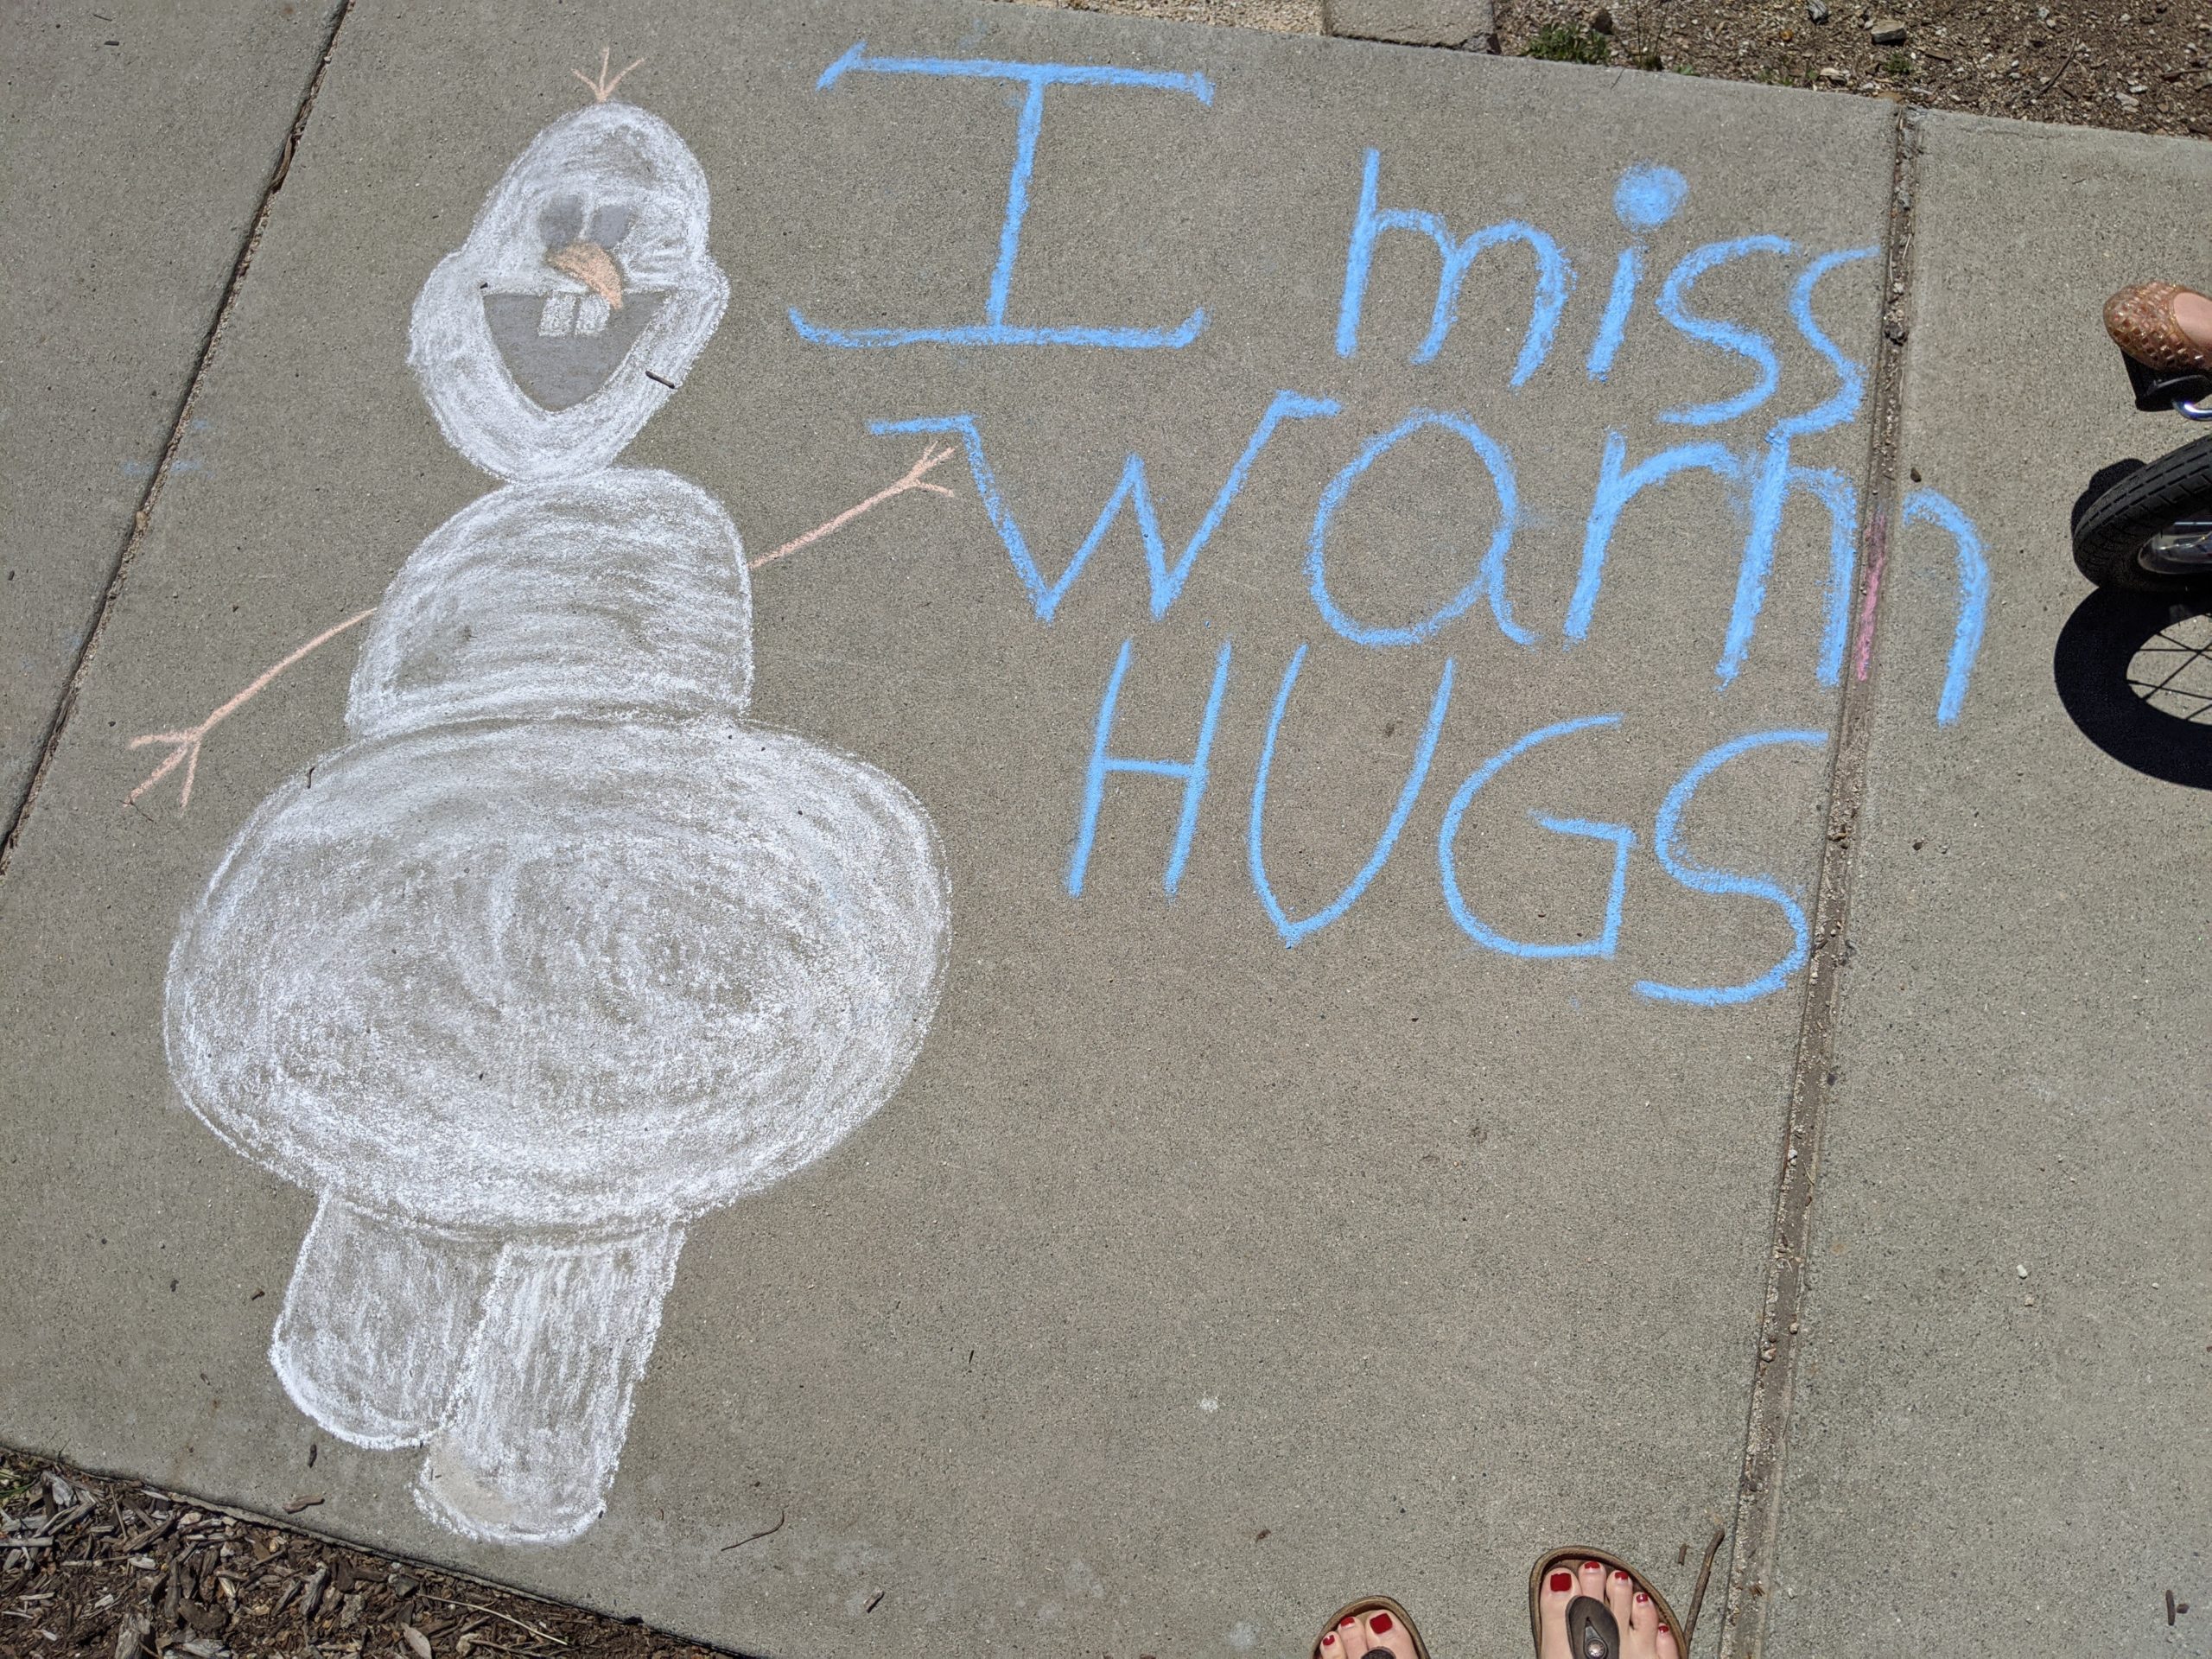 I miss
warm
HUGS